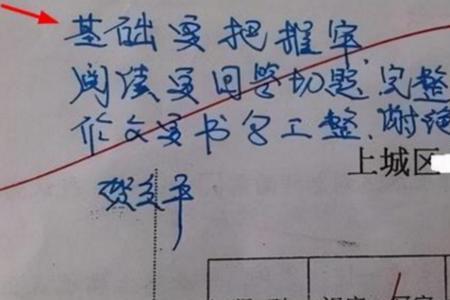 基础要把握牢,
阅读要回答切题,完整
作文要书写工整,谢绝
上城区
贺文平